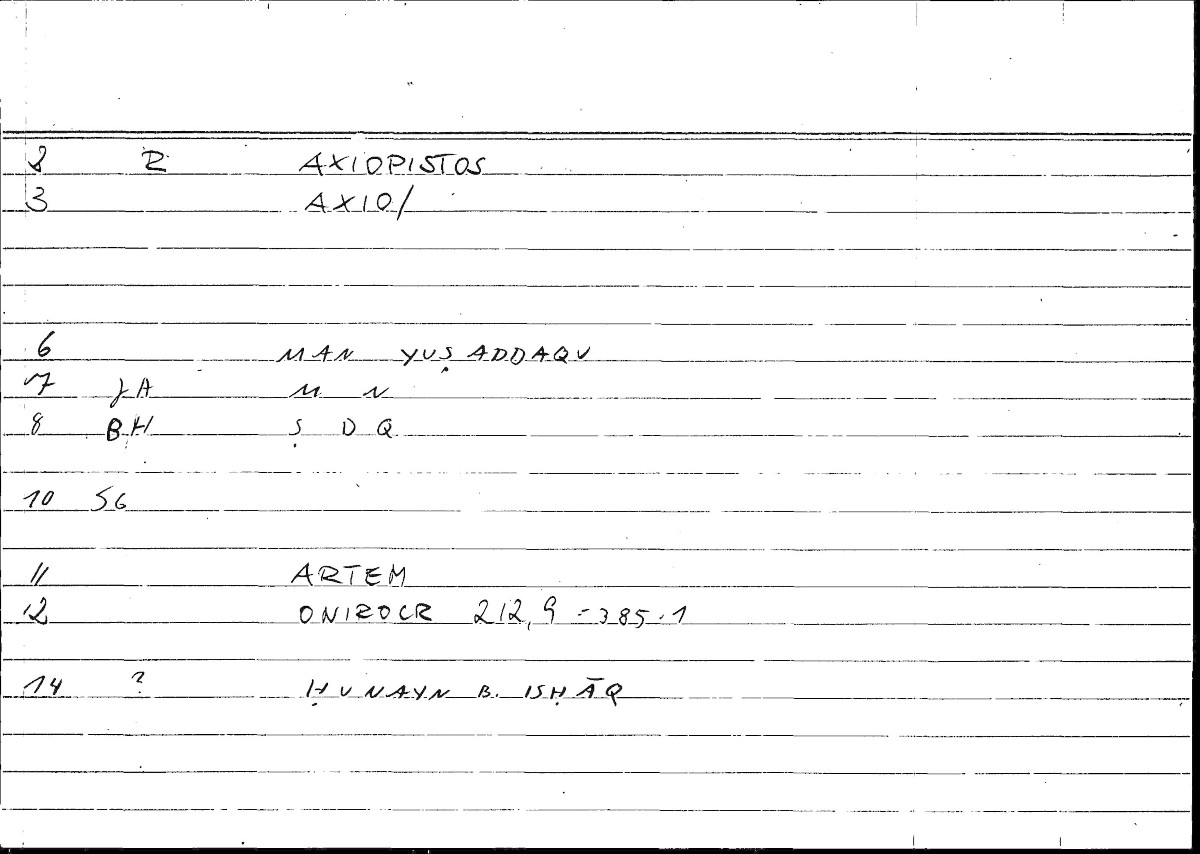 2 R AXIOPISTOS
3 AXIO/
6 MAN YUṢADDAQU
7 JA M N
8 BH Ṣ D Q
10 SG
11 ARTEM
12 ONIROCR 212,9 - 385.1
14 ? ḤUNAYN B. ISḤĀQ